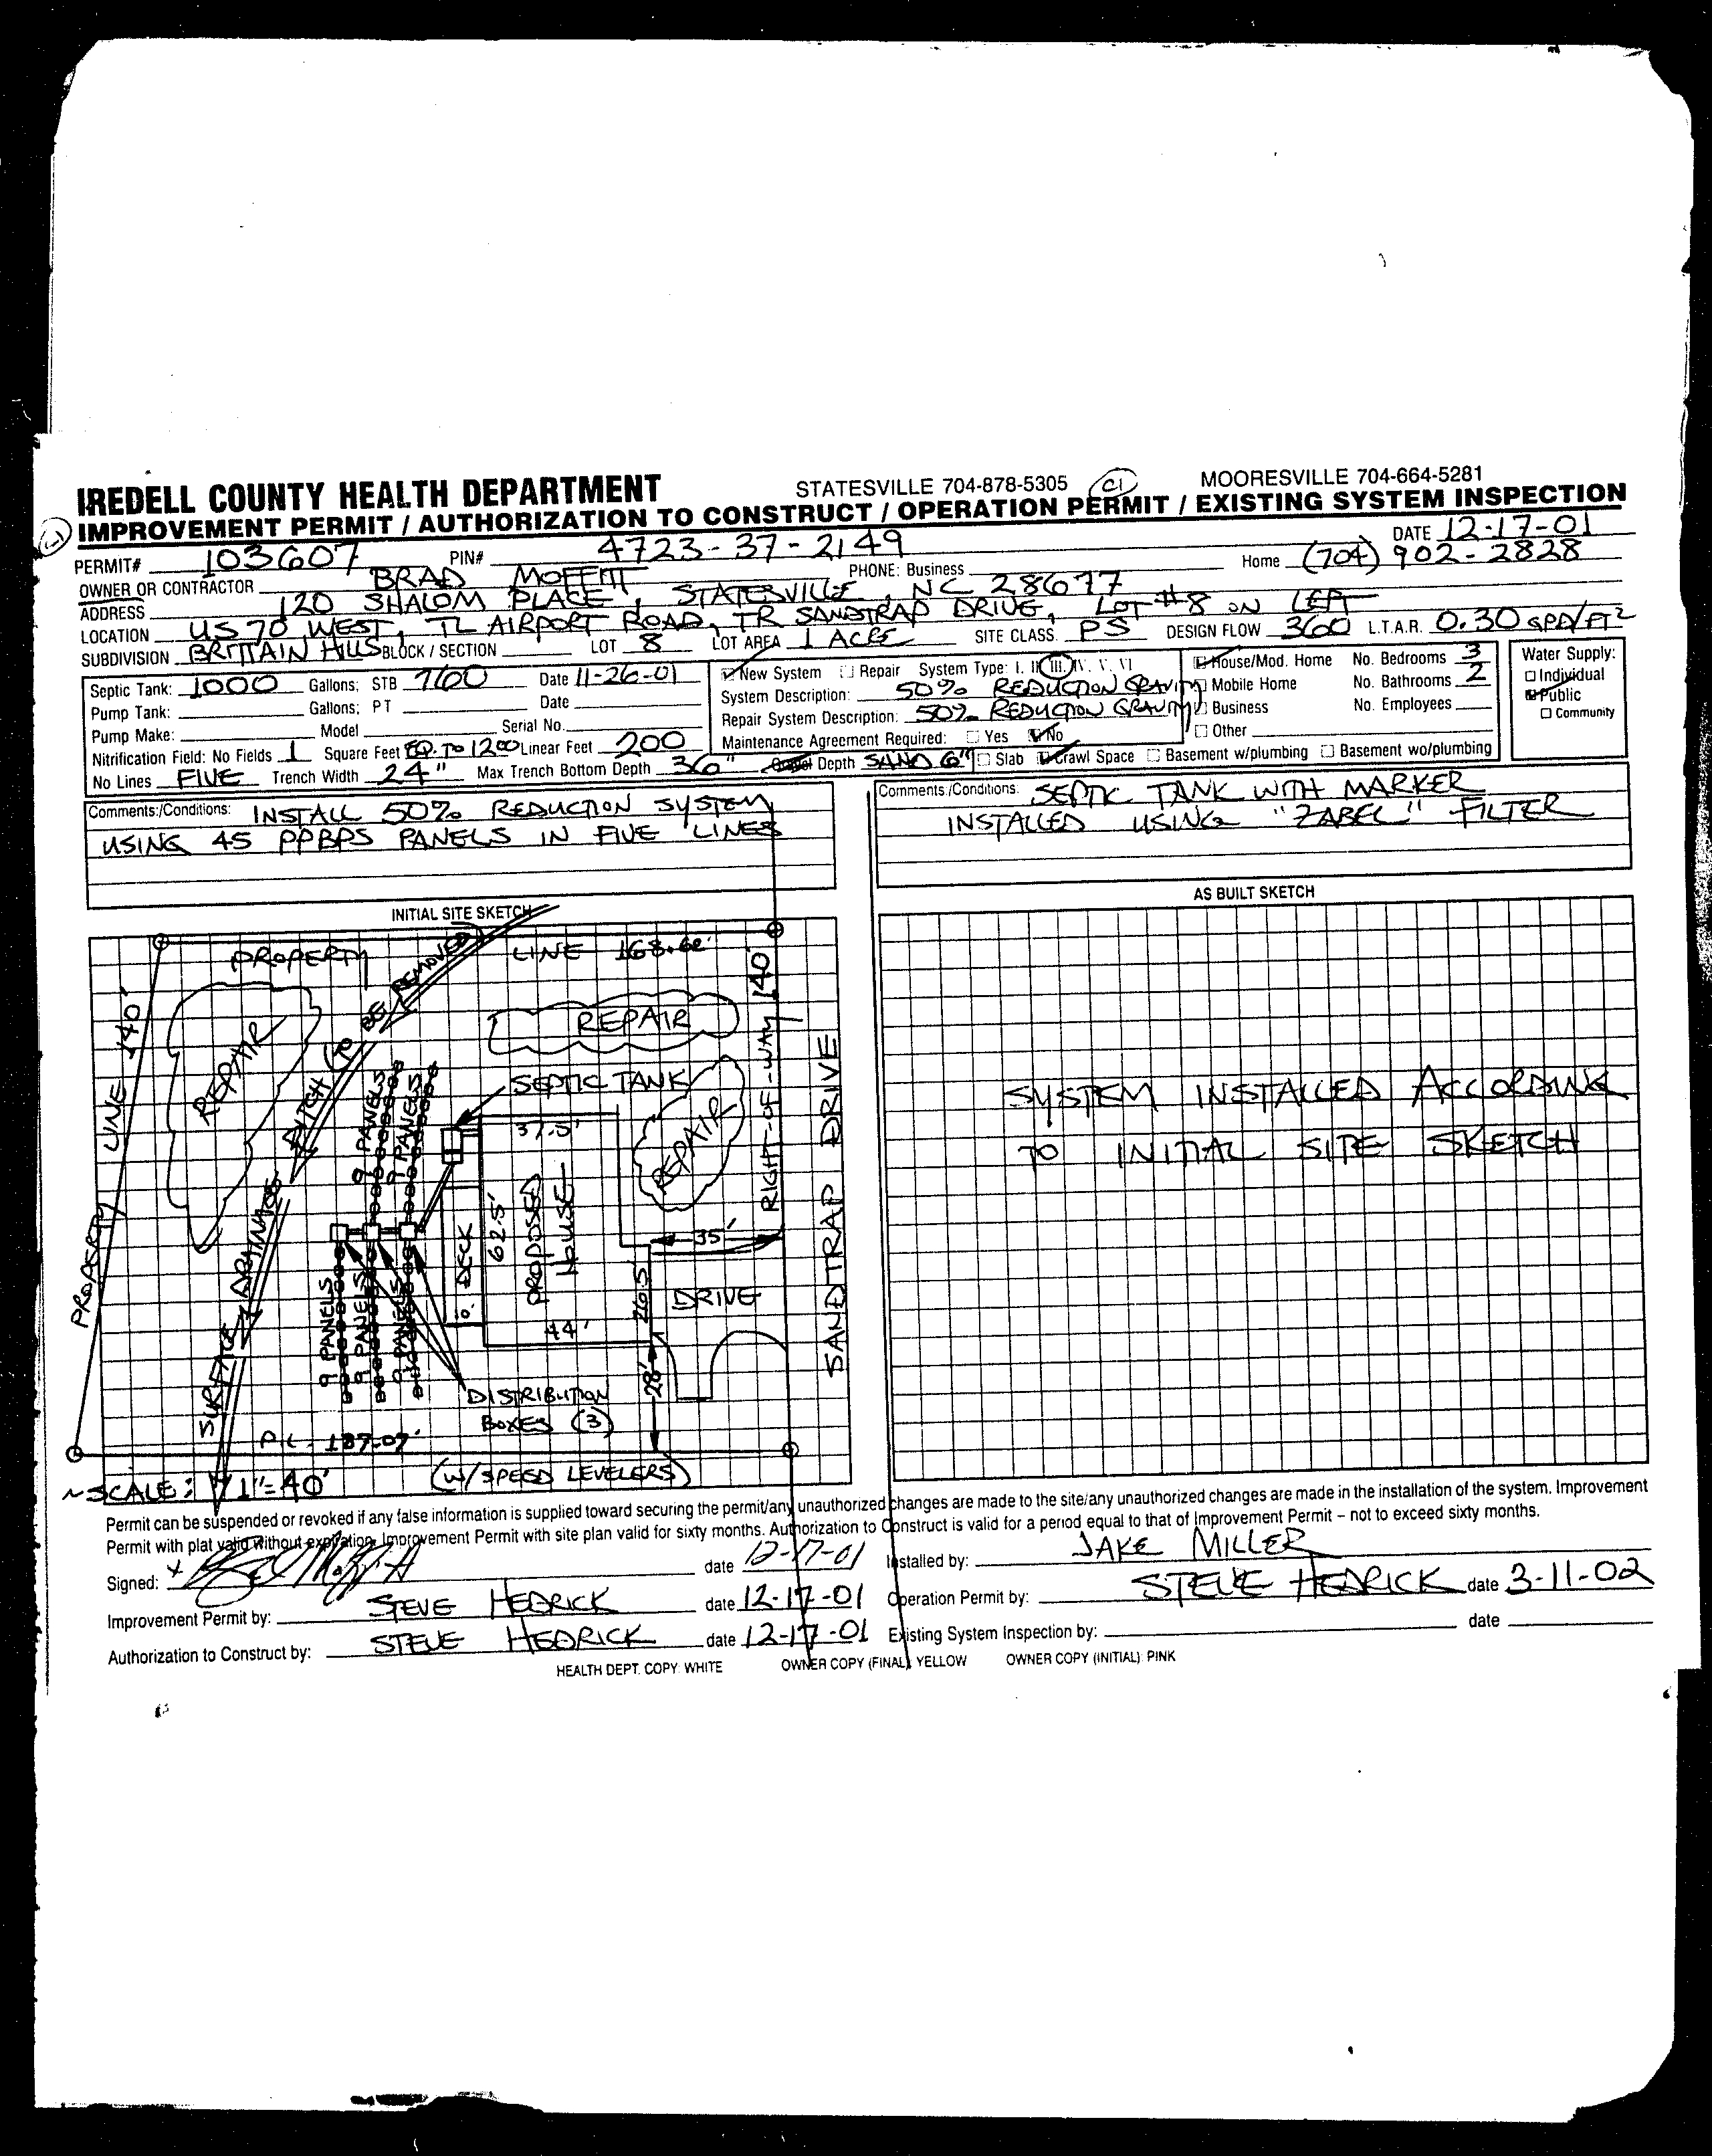 IREDELL COUNTY HEALTH DEPARTMENT STATESVILLE 704-878-5305 C1 MOORESVILLE 704-664-5281
IMPROVEMENT PERMIT / AUTHORIZATION TO CONSTRUCT / OPERATION PERMIT / EXISTING SYSTEM INSPECTION
PERMIT# 103607 PIN# 4723-37-2149 DATE 12-17-01
OWNER OR CONTRACTOR BRAD MOFFITT PHONE: Business Home (704) 902-2828
ADDRESS 120 SHALOM PLACE, STATESVILLE, NC 28677
LOCATION US 70 WEST, TL AIRPORT ROAD, TR SANDTRAP DRIVE, LOT #8 ON LEFT
SUBDIVISION BRITTAIN HILLS BLOCK / SECTION LOT 8 LOT AREA 1 ACRE SITE CLASS. PS DESIGN FLOW 360 L.T.A.R. 0.30 GPD/FT2
Septic Tank: 1000 Gallons; STB 760 Date 11-26-01
Pump Tank: Gallons; PT Date
Pump Make: Model Serial No.
Nitrification Field: No Fields 1 Square Feet EQ. TO 1200 Linear Feet 200
No Lines FIVE Trench Width 24" Max Trench Bottom Depth 36" Gravel Depth SAND 6"
New System Repair System Type: I. II. III. IV. V. VI
System Description: 50% REDUCTION GRAVITY
Repair System Description: 50% REDUCTION GRAVITY
Maintenance Agreement Required: Yes No
Slab Crawl Space Basement w/plumbing Basement wo/plumbing
House/Mod. Home No. Bedrooms 3
Mobile Home No. Bathrooms 2
Business No. Employees
Other
Water Supply:
Individual
Public
Community
Comments:/Conditions: INSTALL 50% REDUCTION SYSTEM
USING 45 PPBPS PANELS IN FIVE LINES
Comments:/Conditions: SEPTIC TANK WITH MARKER
INSTALLED USING "ZABEL" FILTER
INITIAL SITE SKETCH
PROPERTY LINE 168.62'
PROPERTY LINE 140'
REPAIR
REPAIR
REPAIR
SURFACE DRAINAGE DITCH (TO BE REMOVED)
SEPTIC TANK
9 PANELS
9 PANELS
9 PANELS
9 PANELS
9 PANELS
DECK
37.5'
62.5'
PROPOSED
HOUSE
44'
26.5'
35'
28'
DRIVE
RIGHT-OF-WAY 140'
SANDTRAP DRIVE
DISTRIBUTION
BOXES (3)
(W/SPEED LEVELERS)
P.L. 187.07'
~SCALE: 1"=40'
AS BUILT SKETCH
SYSTEM INSTALLED ACCORDING
TO INITIAL SITE SKETCH
Permit can be suspended or revoked if any false information is supplied toward securing the permit/any unauthorized changes are made to the site/any unauthorized changes are made in the installation of the system. Improvement
Permit with plat valid without expiration. Improvement Permit with site plan valid for sixty months. Authorization to Construct is valid for a period equal to that of Improvement Permit – not to exceed sixty months.
Signed: x date 12-17-01 Installed by: JAKE MILLER
Improvement Permit by: STEVE HEDRICK date 12-17-01 Operation Permit by: STEVE HEDRICK date 3-11-02
Authorization to Construct by: STEVE HEDRICK date 12-17-01 Existing System Inspection by: date
HEALTH DEPT. COPY: WHITE OWNER COPY (FINAL): YELLOW OWNER COPY (INITIAL): PINK